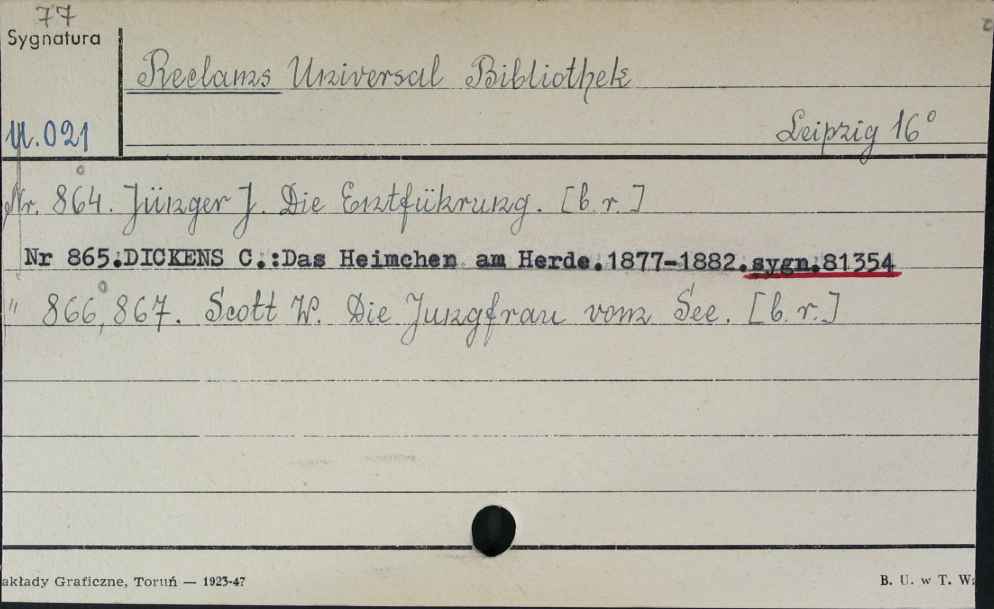 77
Sygnatura
Reclams Universal Bibliothek
U.021
Leipzig 16°
Nr. 864. Jünger J. Die Entführung. [b. r.]
Nr 865.DICKENS C.:Das Heimchen am Herde.1877-1882.sygn.81354
" 866, 867. Scott W. Die Jungfrau vom See. [b. r.]
akłady Graficzne, Toruń — 1923-47
B. U. w T.